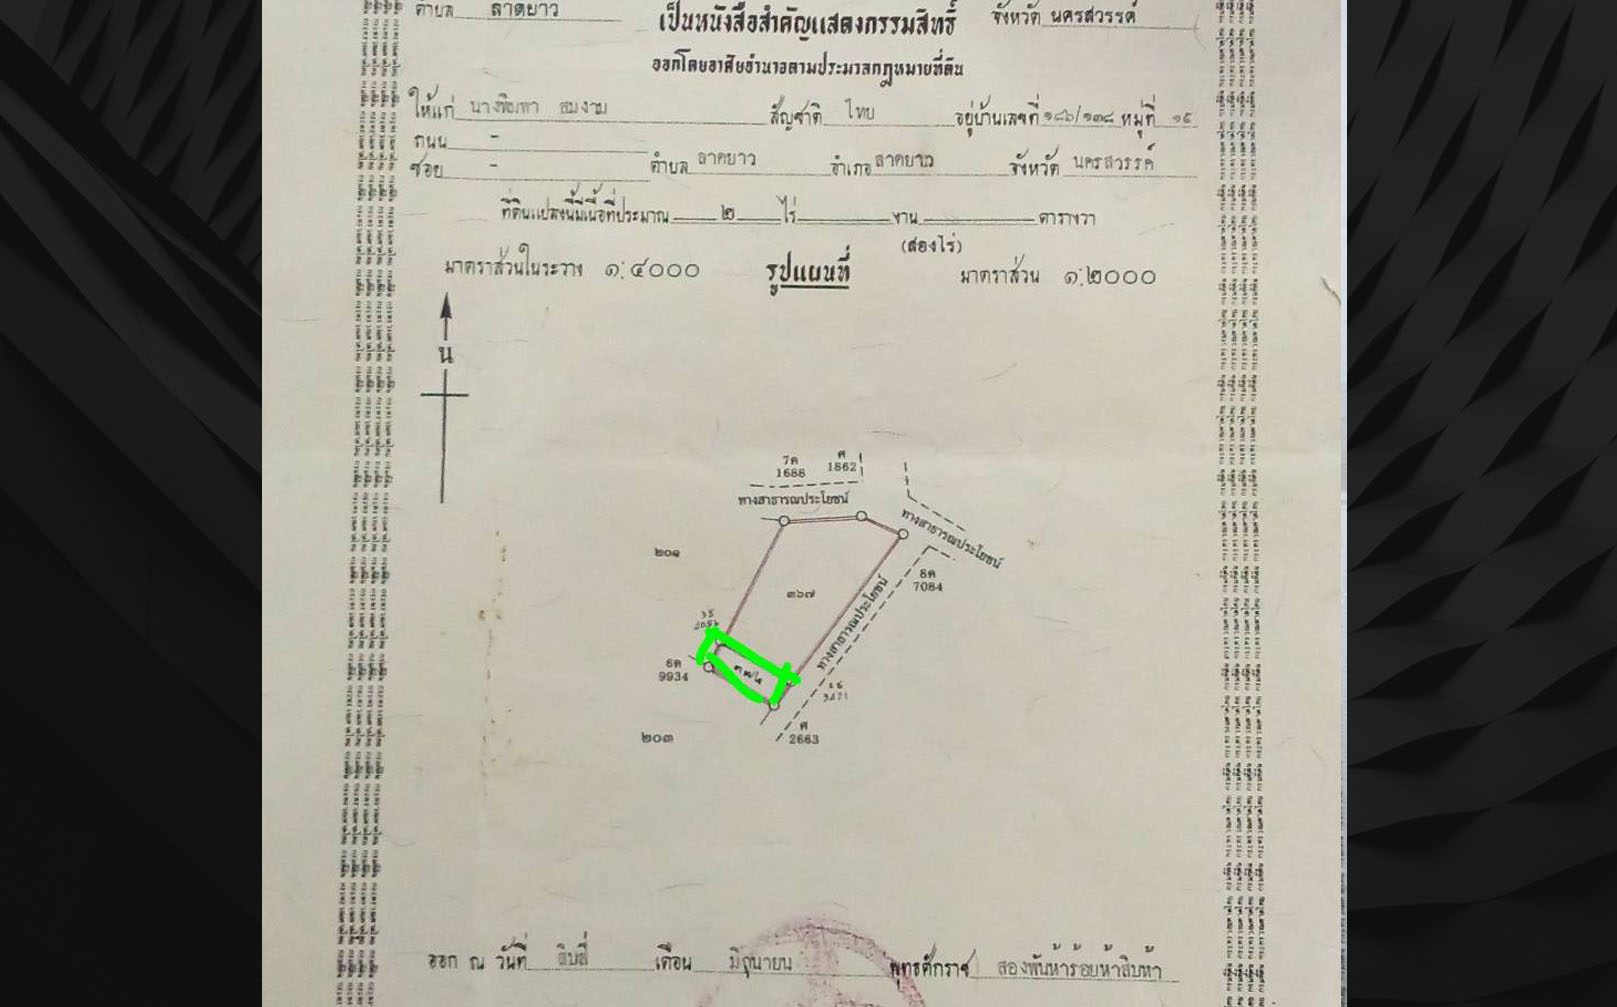 ตำบล ลาดยาว เป็นหนังสือสำคัญแสดงกรรมสิทธิ์ จังหวัด นครสวรรค์
ออกโดยอาศัยอำนาจตามประมวลกฎหมายที่ดิน
ให้แก่ นางพิมพา สมงาม สัญชาติ ไทย อยู่บ้านเลขที่ ๑๘๖/๑๓๘ หมู่ที่ ๑๕
ถนน -
ซอย - ตำบล ลาดยาว อำเภอ ลาดยาว จังหวัด นครสวรรค์
ที่ดินแปลงนี้มีเนื้อที่ประมาณ ๒ ไร่ งาน ตารางวา
(สองไร่)
มาตราส่วนในระวาง ๑:๔๐๐๐ รูปแผนที่ มาตราส่วน ๑:๒๐๐๐
น
7ค
1688
ศ
1862
ทางสาธารณประโยชน์
ทางสาธารณประโยชน์
๒๐๑
8ค
7084
๓๖๗
ทางสาธารณประโยชน์
8ค
9934
ศ
2663
๒๐๓
ออก ณ วันที่ สิบสี่ เดือน มิถุนายน พุทธศักราช สองพันห้าร้อยห้าสิบห้า